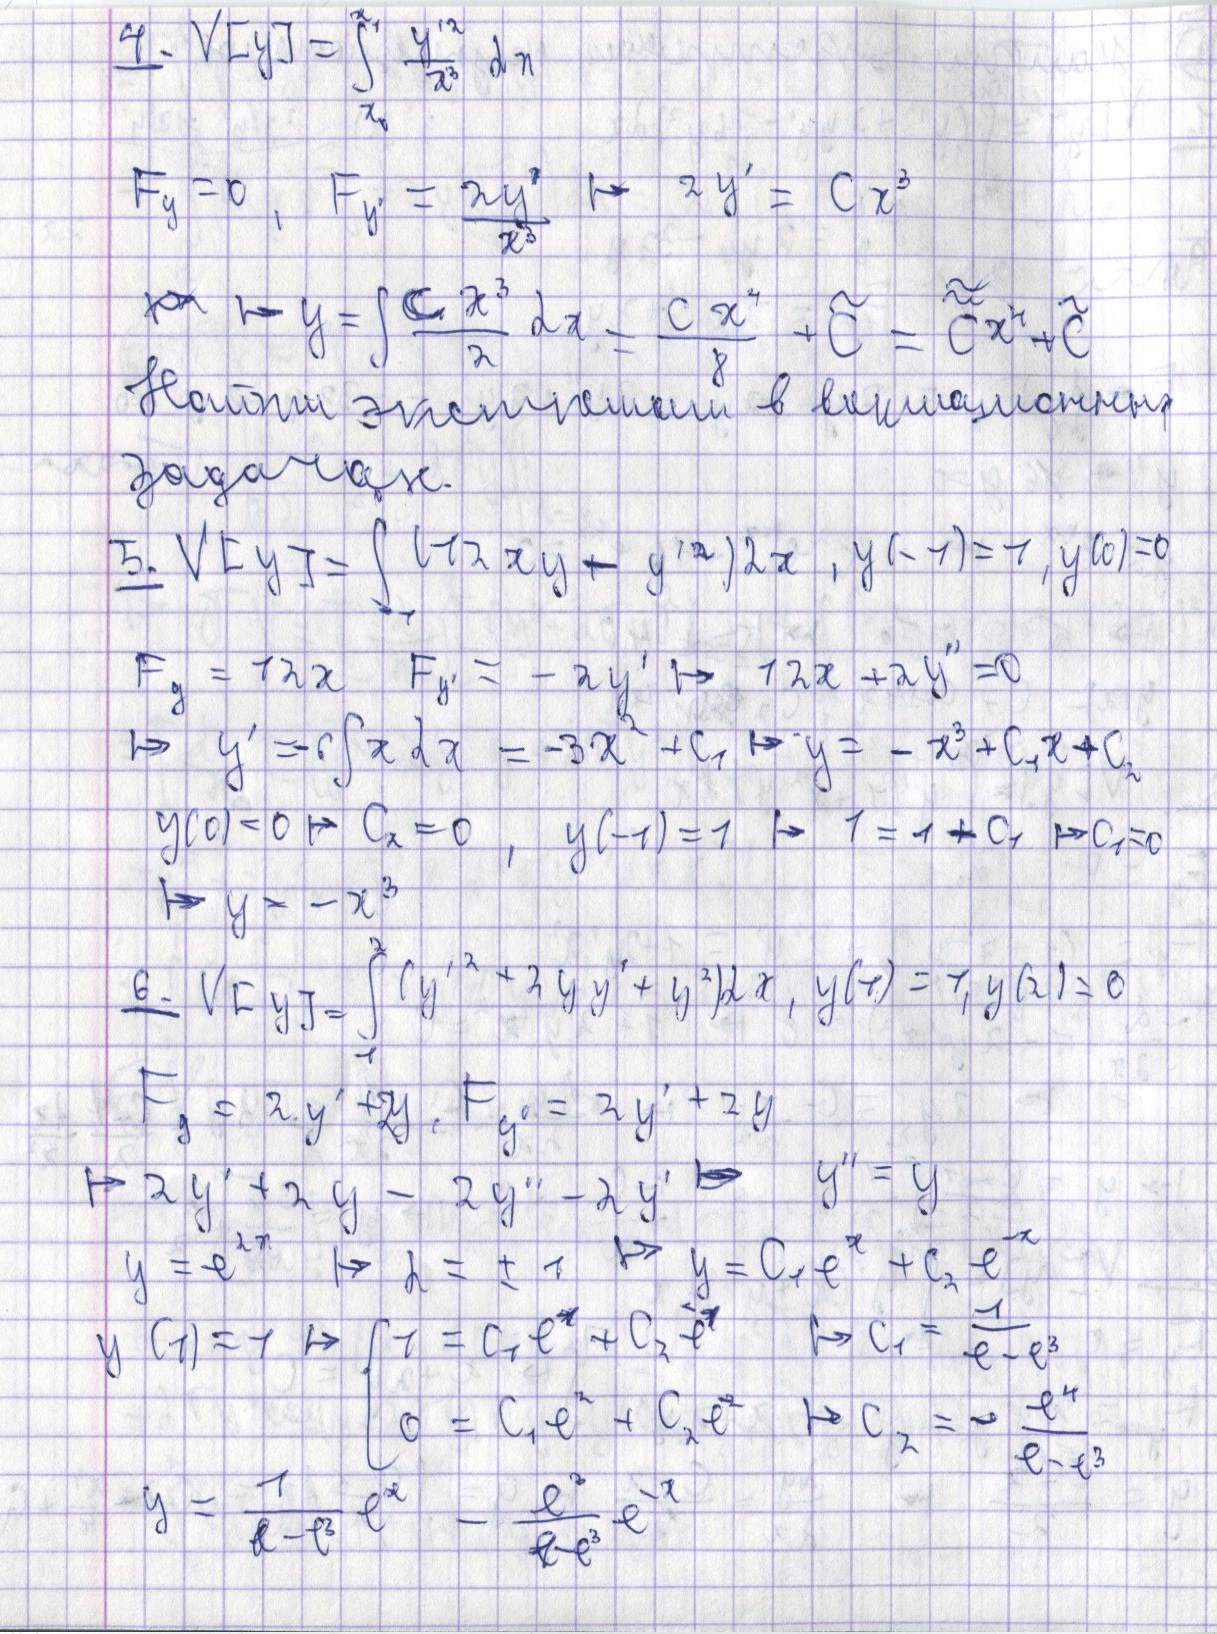 4. V[y] = ∫_{x₀}^{x₁} y'²/x³ dx
F_y = 0, F_y' = 2y'/x³ ↦ 2y' = Cx³
↦ y = ∫ Cx³/2 dx = Cx⁴/8 + C̃ = C̃̃x⁴ + C̃
Найти экстремали в вариационных
задачах.
5. V[y] = ∫_{-1} (12xy - y'²)dx, y(-1) = 1, y(0) = 0
F_y = 12x F_y' = -2y' ↦ 12x + 2y'' = 0
↦ y' = -6∫x dx = -3x² + C₁ ↦ y = -x³ + C₁x + C₂
y(0) = 0 ↦ C₂ = 0, y(-1) = 1 ↦ 1 = 1 - C₁ ↦ C₁ = 0
↦ y = -x³
6. V[y] = ∫_1^2 (y'² + 2yy' + y²)dx, y(1) = 1, y(2) = 0
F_y = 2y' + 2y, F_y' = 2y' + 2y
↦ 2y' + 2y - 2y'' - 2y' ↦ y'' = y
y = e^{λx} ↦ λ = ±1 ↦ y = C₁e^x + C₂e^{-x}
y(1) = 1 ↦ { 1 = C₁e^x + C₂e^{-x} ↦ C₁ = 1/(e - e³)
0 = C₁e² + C₂e^{-2} ↦ C₂ = - e⁴/(e - e³)
y = 1/(e - e³) e^x - e³/(e - e³) e^{-x}